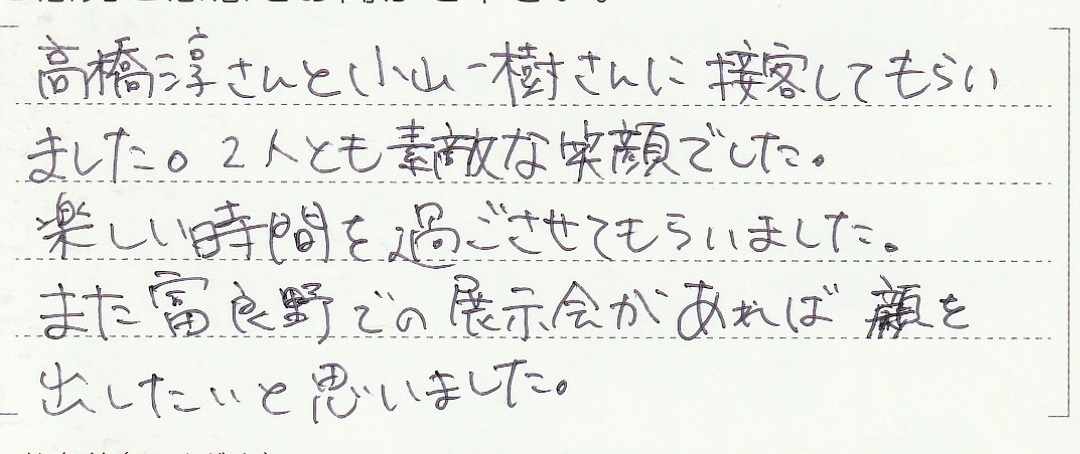 高橋淳さんと小山一樹さんに接客してもらい
ました。2人とも素敵な笑顔でした。
楽しい時間を過ごさせてもらいました。
また富良野での展示会があれば顔を
出したいと思いました。